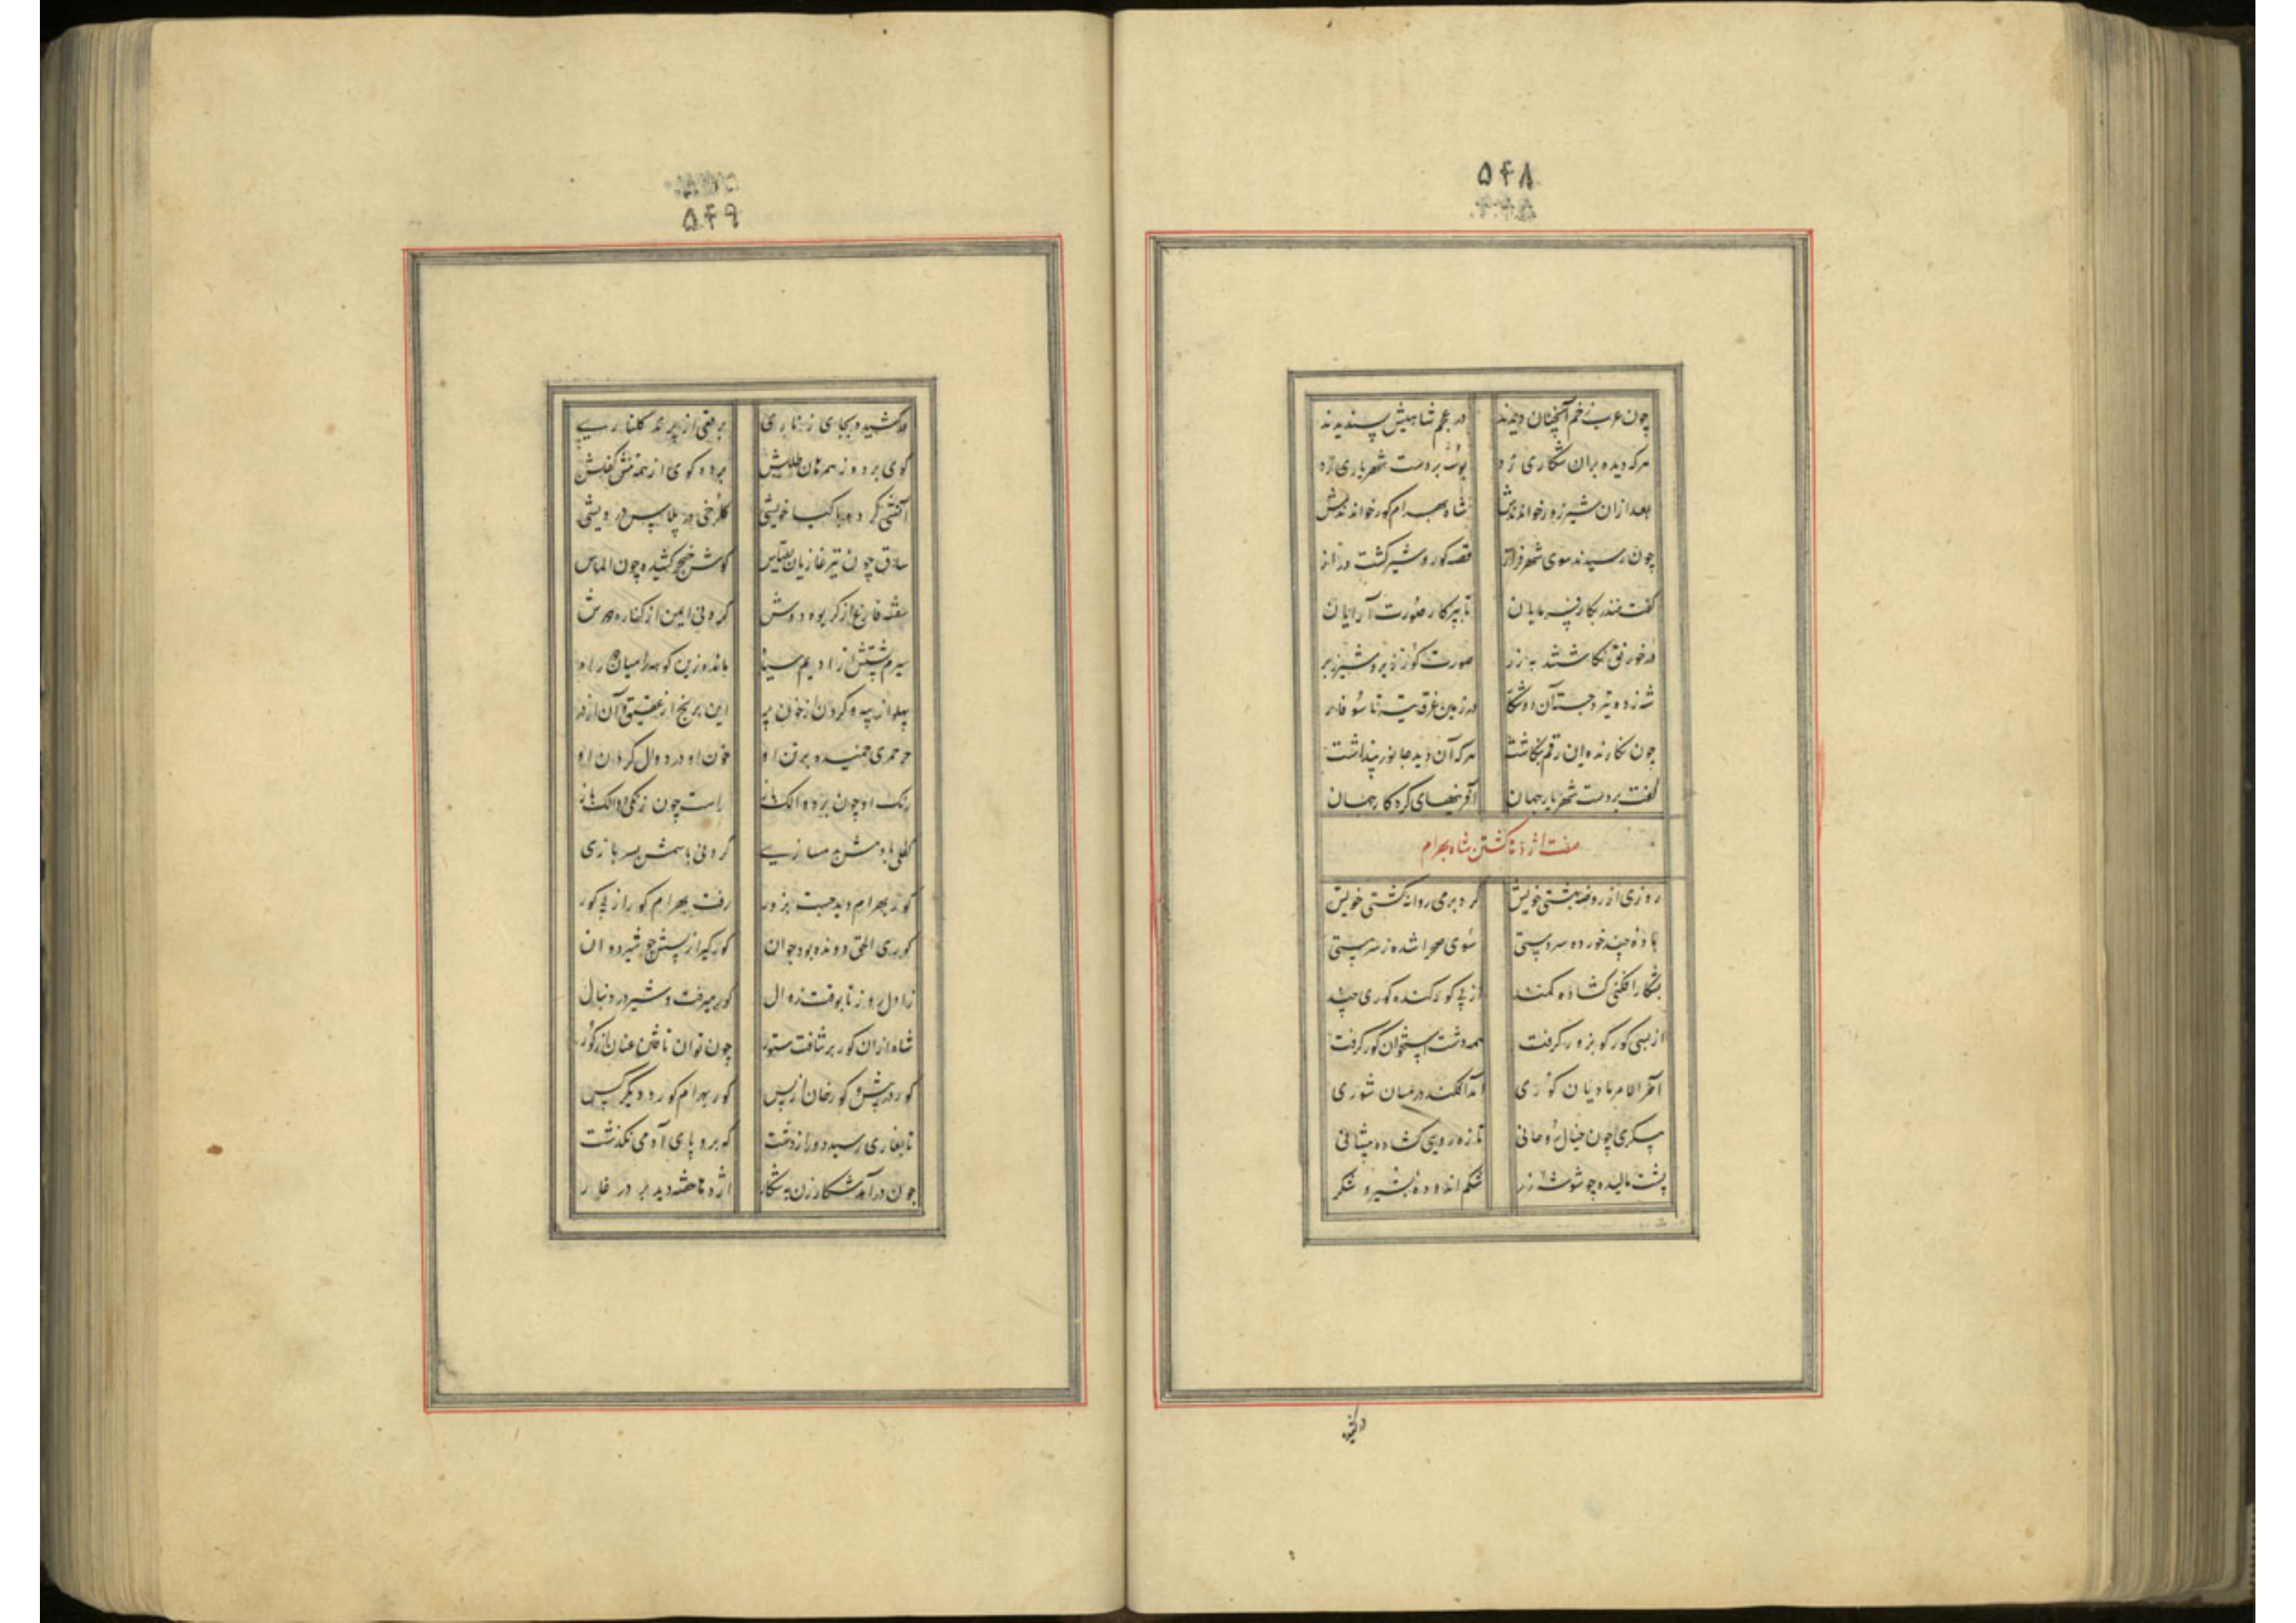 ۵۴۸
چون عرب زخم آنچنان دیدند در عجم شاهیش پسندیدند
هرکه دیده بران شکاری زد بوسه بر دست شهریاری زد
بعد ازان شیر زور خواندندش شاه بهرام کور خواندندش
چون رسیدند سوی شهر فراز قصه کور و شیر گشت دراز
گفت منذر بکارفرمایان تا بپرکار صورت آرایان
در خورنق نگاشتند به زر صورت کور زیر و شیر زبر
شه زده تیر و جسته آن دو شکار در زمین غرق گشته تا سوفار
چون نگارنده این رقم بنگاشت هرکه آن دید جانور پنداشت
گفت بر دست شهریار جهان آفرینهای کردکار جهان
صفت اژدها کشتن شاه بهرام
روزی از روضه بهشتی خویش کرد بر می روانه کشتی خویش
بادهٔ چند خورده سردستی سوی صحرا شده ز سرمستی
بشکار افکنی کشاده کمند از پی کور کنده کوری چند
از بسی کور کو بزور کرفت همه دشت استخوان کور کرفت
آخرالامر مادیان کوری آمد افکند در میان شوری
پیکری چون خیال روحانی تازه رویی کشاده پیشانی
پشت مالیده چو شوشه زر شکم اندوده بشیر و شکر
در کشیده
۵۴۹
در کشیده بجای زناری برقعی از پرند کلناری
کوی برده ز همرهان طللش برده کوی از همه تنش کفلش
آتشی کرده با کیا خویشی کلرخی در پلاس درویشی
ساق چون تیر غازیان بقیاس کوش خنجر کشیده چون الماس
سفته فارغ از کریوه دوش کردنی ایمن از کناره گوش
سیرم پشتش از ادیم سیاه مانده زین کوهه را میان راه
پهلو از پیه و کردن از خون پر این برنج از عقیق و آن از در
خز حمری تنیده بر تن او خون او در دوال کردن او
رنک او چون بزده راست چون زنکی
کفلی با دمش بدمسازی کردنی با سمش بسربازی
کور بهرام دید جست بزور رفت بهرام کور از پی کور
کوری الحق دونده بود جوان کورکیر از پسش چو شیر دوان
ز اول روز تا بوقت زوال کور میرفت و شیر در دنبال
شاه ازان کور بر نتافت ستور چون توان تافتن عنان از کور
کور در پیش و کورخان از پس کور بهرام کور و دیگر کس
تا بغاری رسید دور از دشت که برو پای آدمی نکذشت
چون درآمد شکارزن به شکار اژدها خفته دید بر در غار